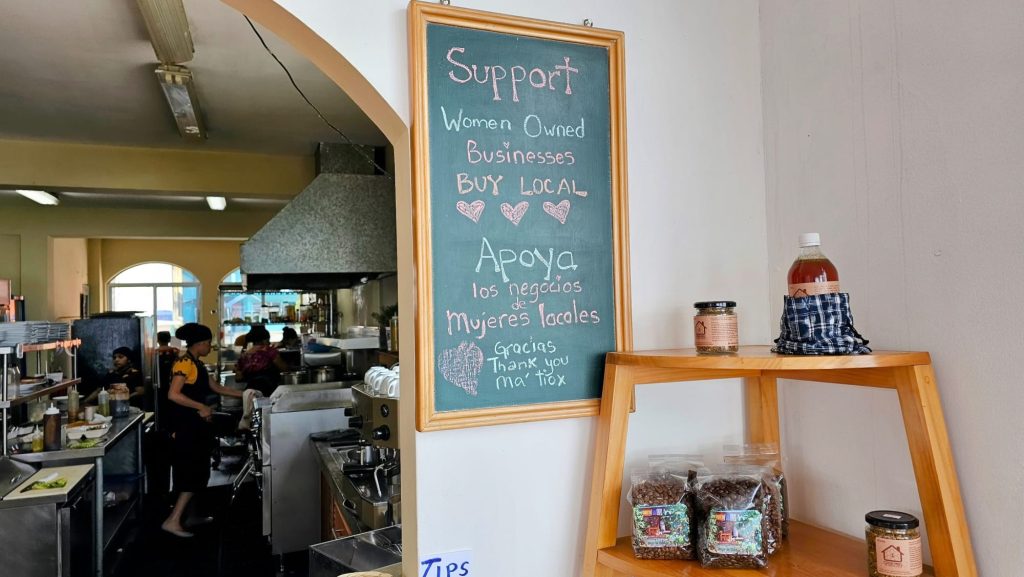 Support
Women Owned
Businesses
BUY LOCAL
Apoya
los negocios
de
Mujeres locales
Gracias
Thank you
Ma' tiox
TIPS